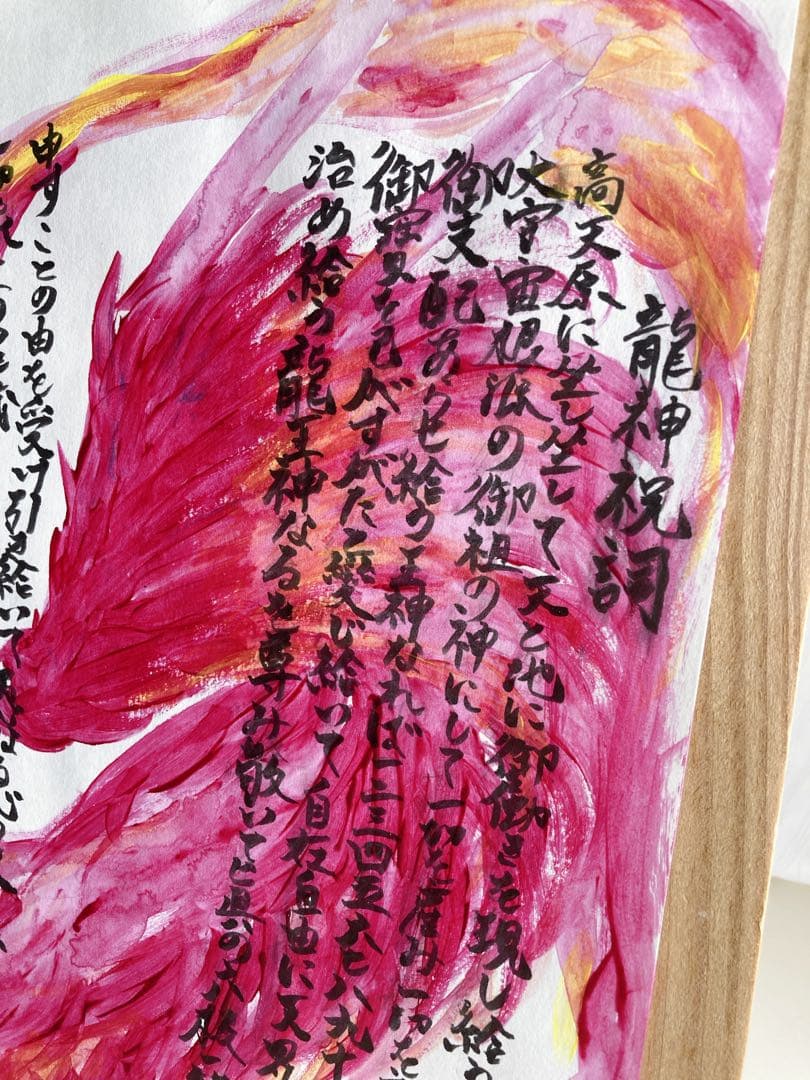 龍神祝詞
高天原に坐し坐して天と地に御働きを現し給う
大宇宙根源の御祖の神にして一切を産み一切を
御支配あらせ給う王神なれば一二三四五六七八九十
御寶を己がすがたと変じ給いて自在自由に天界
治め給う龍王神なるを尊み敬いて真の六根一
申すことの由を受け引き給いて愚かなる心の